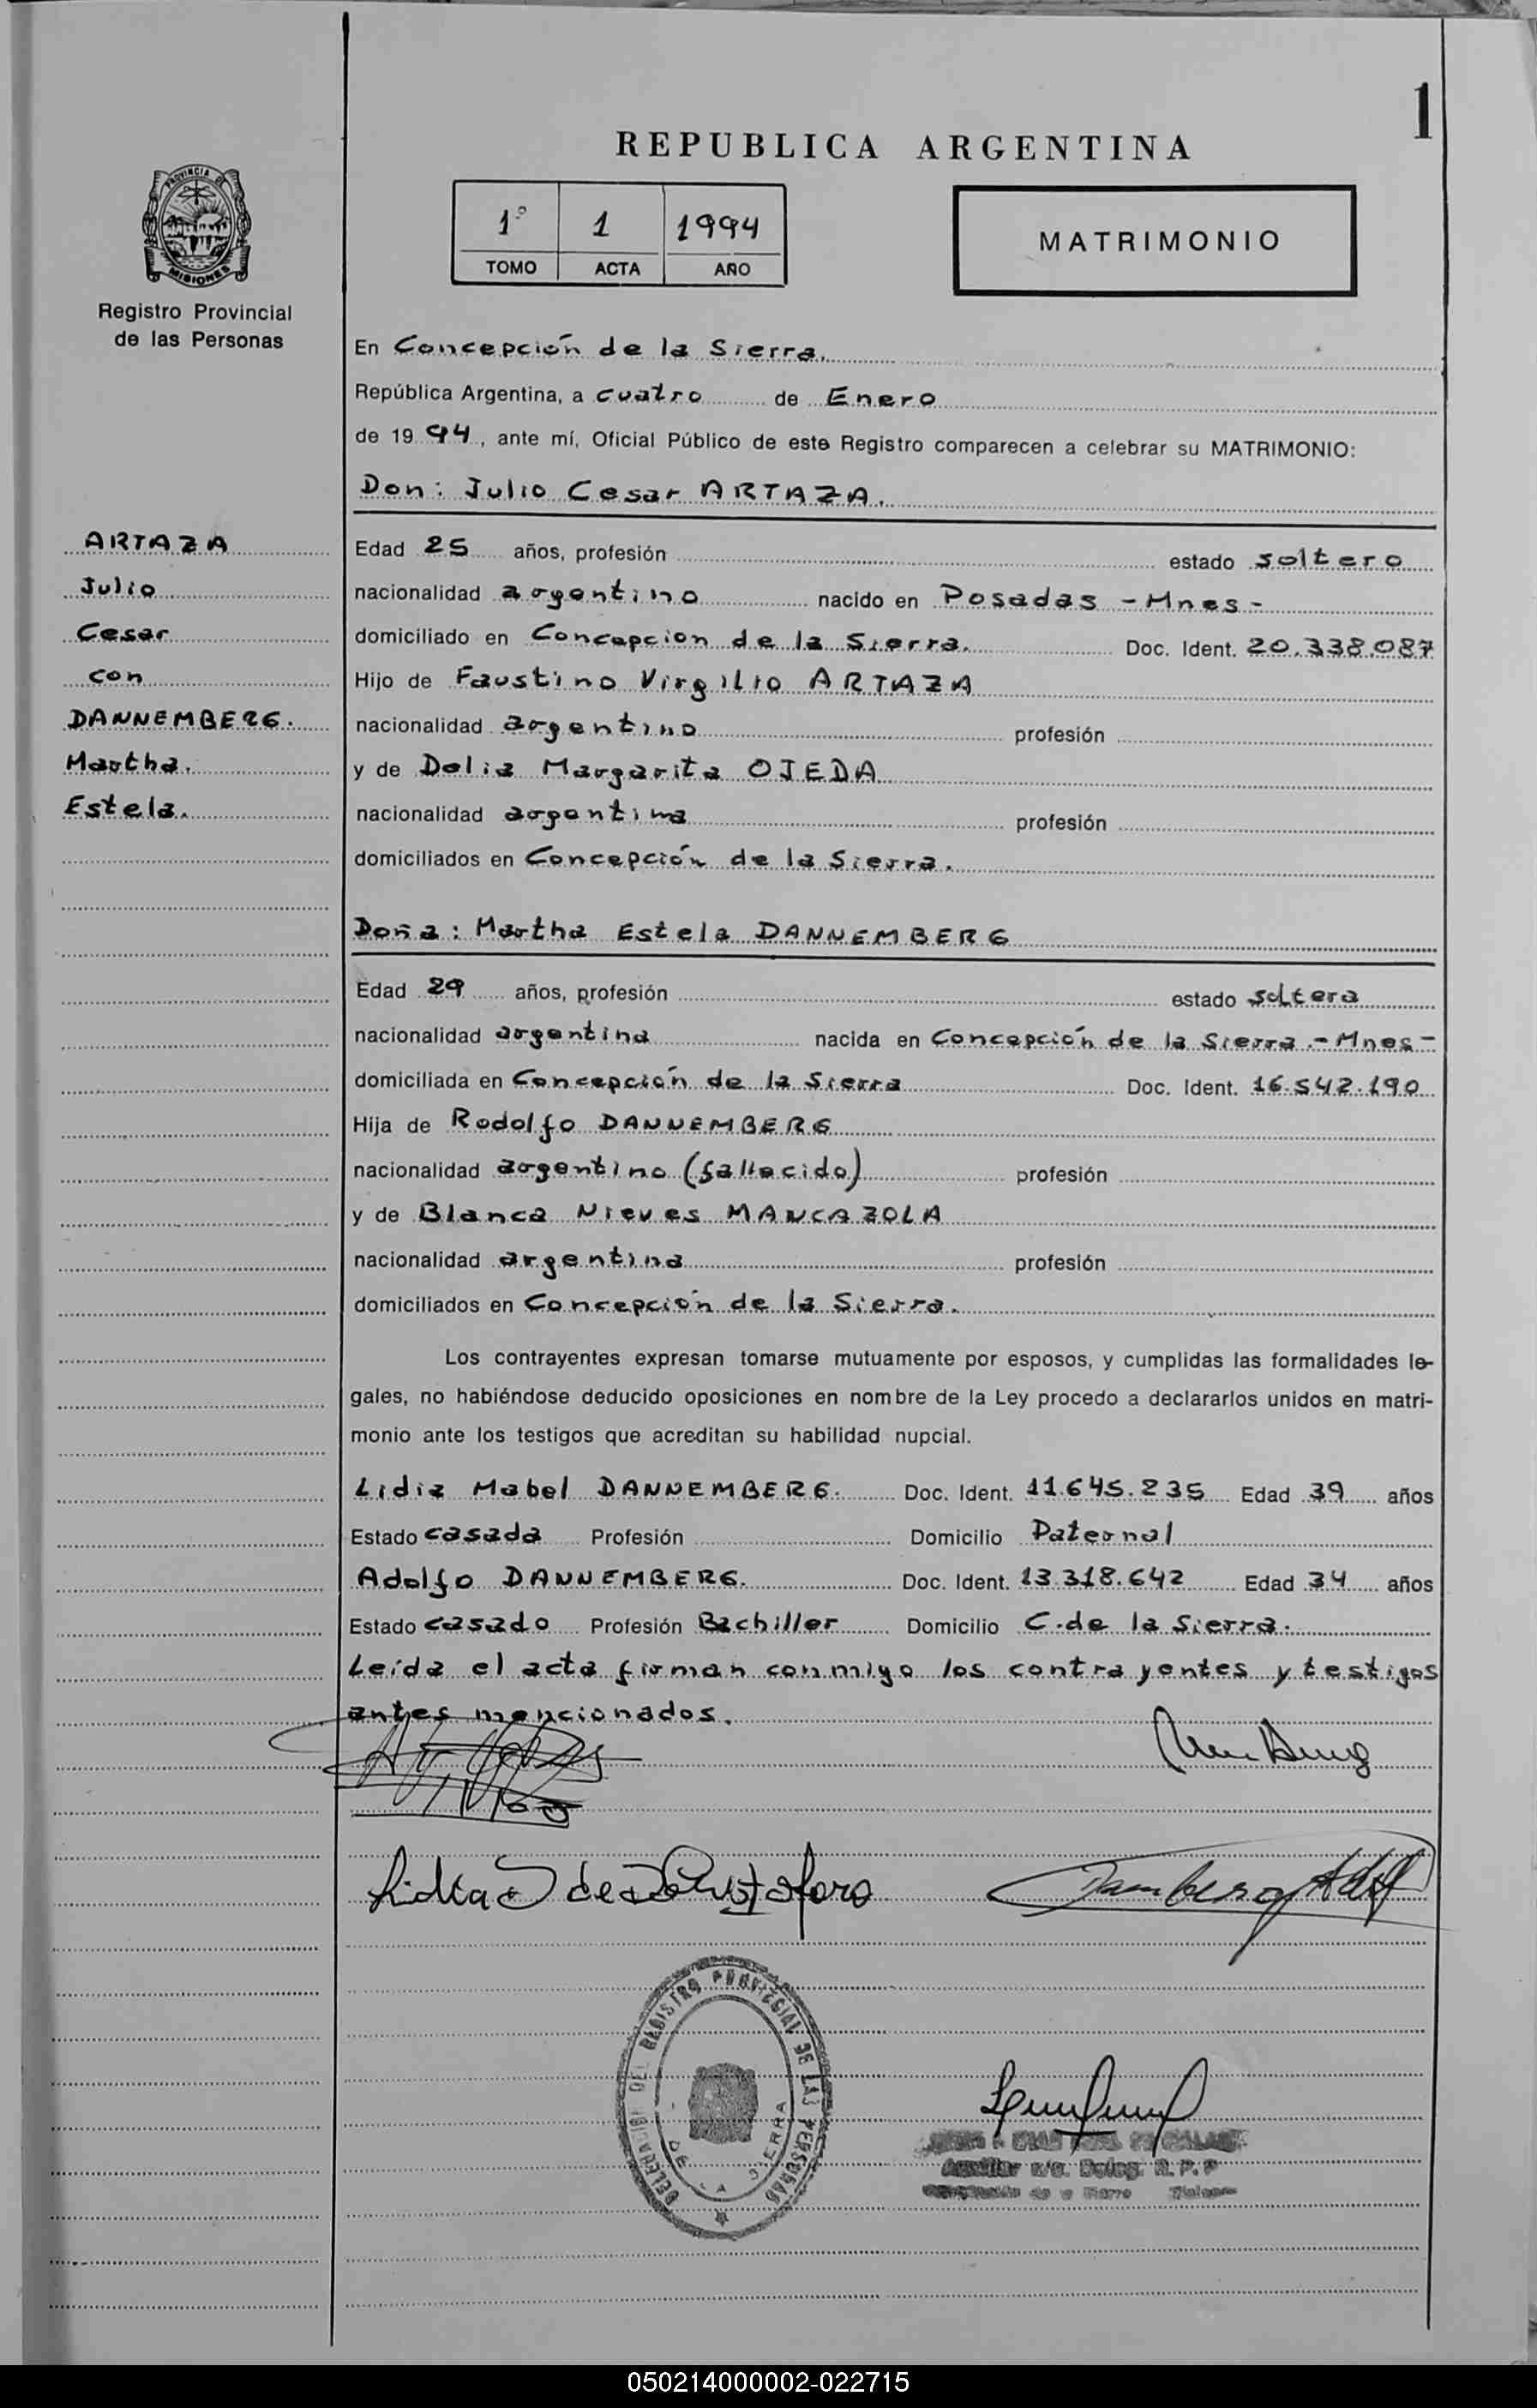 1
REPUBLICA ARGENTINA
PROVINCIA DE
MISIONES
Registro Provincial
de las Personas
1º 1 1994
TOMO ACTA AÑO
MATRIMONIO
En Concepción de la Sierra.
República Argentina, a cuatro de Enero
de 1994, ante mí, Oficial Público de este Registro comparecen a celebrar su MATRIMONIO:
Don: Julio Cesar ARTAZA.
ARTAZA
Julio
Cesar
con
DANNEMBERG.
Martha.
Estela.
Edad 25 años, profesión estado soltero
nacionalidad argentino nacido en Posadas - Mnes -
domiciliado en Concepcion de la Sierra. Doc. Ident. 20.338.087
Hijo de Faustino Virgilio ARTAZA
nacionalidad argentino profesión
y de Delia Margarita OJEDA
nacionalidad argentina profesión
domiciliados en Concepción de la Sierra.
Doña: Martha Estela DANNEMBERG
Edad 29 años, profesión estado soltera
nacionalidad argentina nacida en Concepción de la Sierra - Mnes -
domiciliada en Concepción de la Sierra Doc. Ident. 16.542.190
Hija de Rodolfo DANNEMBERG
nacionalidad argentino (fallecido) profesión
y de Blanca Nieves MANCAZOLA
nacionalidad argentina profesión
domiciliados en Concepción de la Sierra.
Los contrayentes expresan tomarse mutuamente por esposos, y cumplidas las formalidades le-
gales, no habiéndose deducido oposiciones en nombre de la Ley procedo a declararlos unidos en matri-
monio ante los testigos que acreditan su habilidad nupcial.
Lidia Mabel DANNEMBERG. Doc. Ident. 11.645.235 Edad 39 años
Estado casada Profesión Domicilio Paternal
Adolfo DANNEMBERG. Doc. Ident. 13.318.642 Edad 34 años
Estado casado Profesión Bachiller Domicilio C. de la Sierra.
Leída el acta firman conmigo los contrayentes y testigos
antes mencionados.
DEL REGISTRO PROVINCIAL DE LAS PERSONAS
DE LA SIERRA
Auxiliar Deleg. R. P. P
050214000002-022715